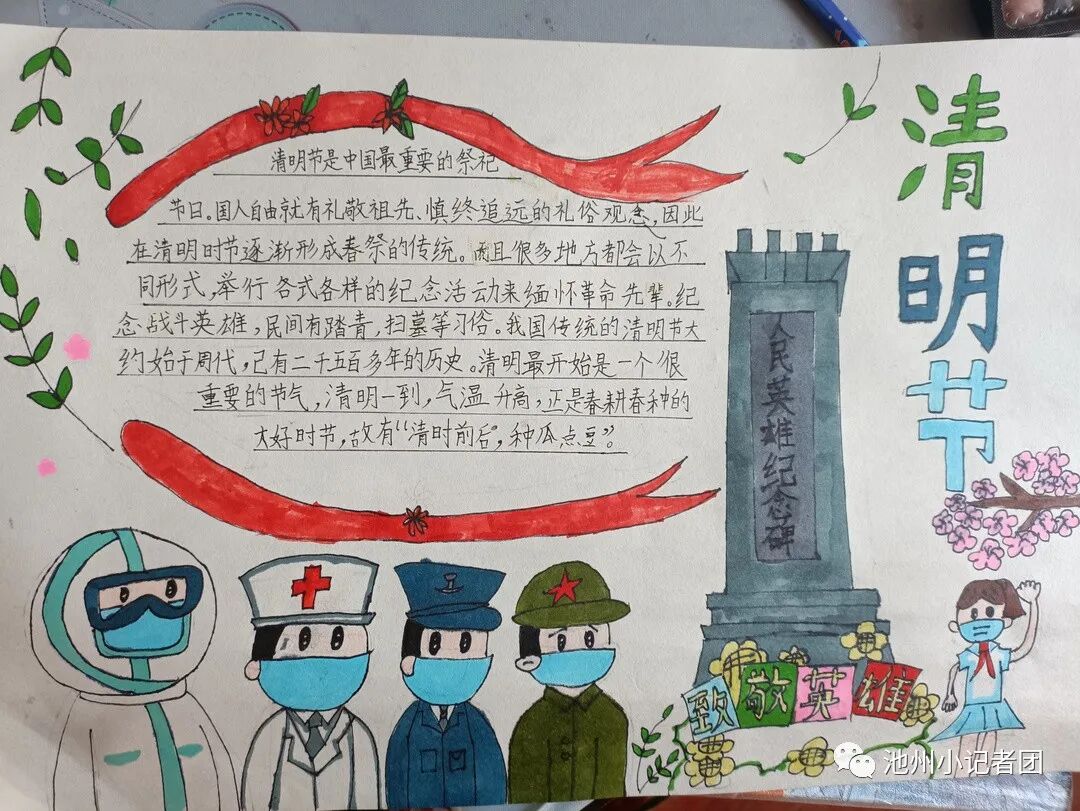 清明节
清明节是中国最重要的祭祀
节日。国人自由就有礼敬祖先、慎终追远的礼俗观念,因此
在清明时节逐渐形成春祭的传统。而且很多地方都会以不
同形式,举行各式各样的纪念活动来缅怀革命先辈。纪
念战斗英雄,民间有踏青,扫墓等习俗。我国传统的清明节大
约始于周代,己有二千五百多年的历史。清明最开始是一个很
重要的节气,清明一到,气温升高,正是春耕春种的
大好时节,故有“清时前后,种瓜点豆”。
人民英雄纪念碑
致敬英雄
池州小记者团